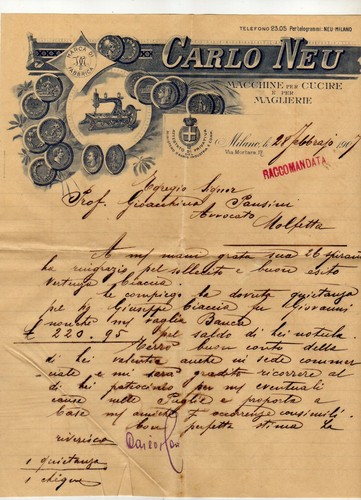 TELEFONO 23.05 Per telegrammi: NEU-MILANO
MARCA DI FABBRICA
CARLO NEU
MACCHINE PER CUCIRE
E PER
MAGLIERIE
Milano, li 28 febbraio 190
Via Mortara, 12
RACCOMANDATA
Egregio Signor
Prof. Gioacchino Pansini
Avvocato
Molfetta
A mani grata sua 26 spirante
ha ringrazio pel sollecito e buon esito
vertenza Ciaccia.
le compiego la dovuta quietanza
pel Sig Giuseppe Ciaccia fu Giovanni
nonché mio vaglia Banca
£ 220.95 pel saldo di lei notula.
Terrò buon conto della
di lei valentia anche in sede commer
ciale e mi sarà gradito ricorrere al
di lei patrocinio per mie eventuali
cause nelle Puglie e proposta a
Case mie amiche occorrenze consimili.
Con perfetta stima la
riverisco
1 quietanza
1 chèque